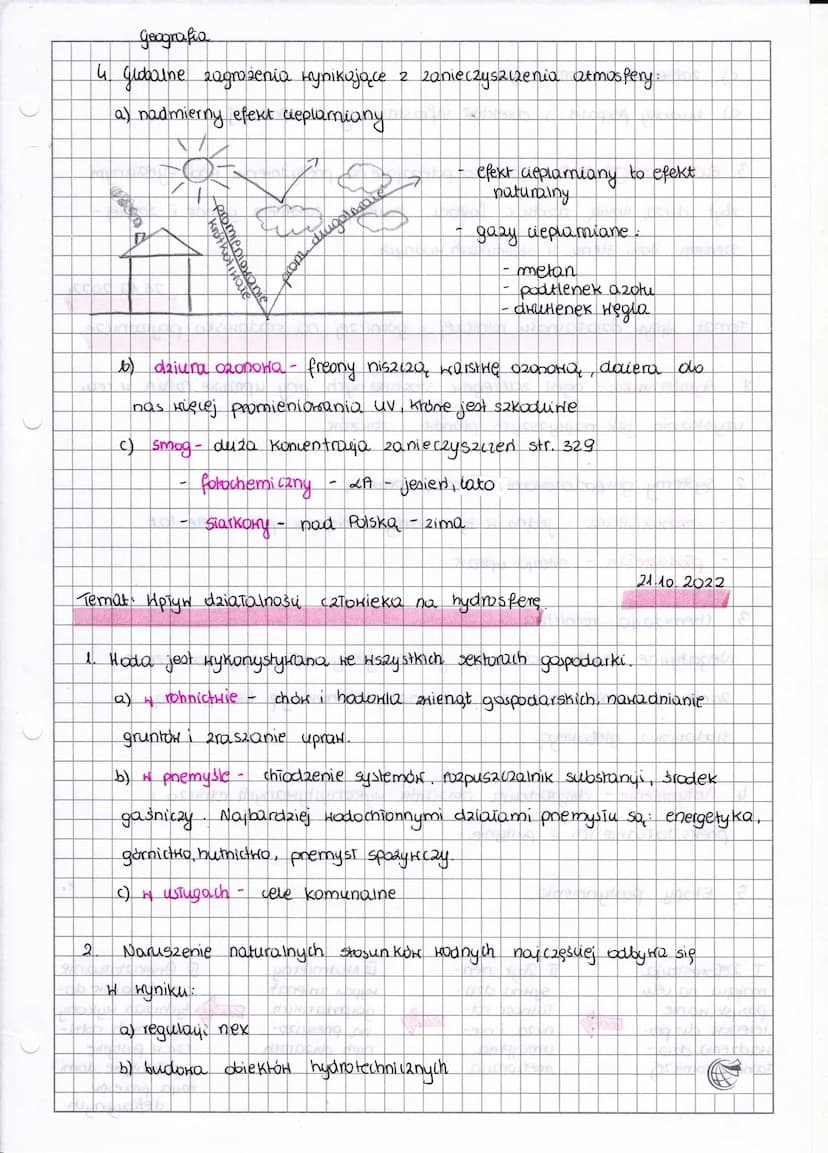 Geografia
4. Globalne zagrożenia wynikające z zanieczyszczenia atmosfery:
a) nadmierny efekt cieplarniany
promieniowanie
krótkofalowe
prom. długofalowe
- efekt cieplarniany to efekt
naturalny
- gazy cieplarniane:
- metan
- podtlenek azotu
- dwutlenek węgla
b) dziura ozonowa - freony niszczą warstwę ozonową, dociera do
nas więcej promieniowania UV, które jest szkodliwe
c) smog - duża koncentracja zanieczyszczeń str. 329
- fotochemiczny - LA - jesień, lato
- siarkowy - nad Polską - zima
21.10.2022
Temat: Wpływ działalności człowieka na hydrosferę.
1. Woda jest wykorzystywana we wszystkich sektorach gospodarki.
a) w rolnictwie - chów i hodowla zwierząt gospodarskich, nawadnianie
gruntów i zraszanie upraw.
b) w przemyśle - chłodzenie systemów, rozpuszczalnik substancji, środek
gaśniczy. Najbardziej wodochłonnymi działami przemysłu są: energetyka,
górnictwo, hutnictwo, przemysł spożywczy.
c) w usługach - cele komunalne
2. Naruszenie naturalnych stosunków wodnych najczęściej odbywa się
w wyniku:
a) regulacji rzek
b) budowa obiektów hydrotechnicznych